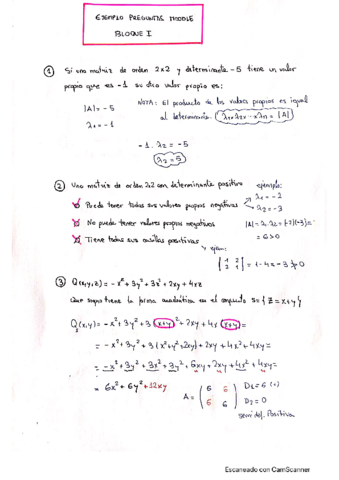 EJEMPLO PREGUNTAS MOODLE
BLOQUE I
① Si una matriz de orden 2x2 y determinante -5 tiene un valor
propio que es -1 su otro valor propio es:
|A| = -5
λ₁ = -1
NOTA: El producto de los valores propios es igual
al determinante. λ₁·λ₂·…·λn = |A|
-1 · λ₂ = -5
λ₂ = 5
② Una matriz de orden 2x2 con determinante positivo
ejemplo:
Puede tener todos sus valores propios negativos
λ₁ = -2
λ₂ = -3
No puede tener valores propios negativos
|A| = λ₁·λ₂ = (-2)(-3) =
= 6 > 0
Tiene todas sus casillas positivas
ejem:
= 1 - 4 = -3
③ Q(x,y,z) = -x² + 3y² + 3z² + 2xy + 4xz
Que signo tiene la forma cuadrática en el conjunto S = {z = x+y}
Q(x,y) = -x² + 3y² + 3 (x+y)² + 2xy + 4x (x+y) =
= -x² + 3y² + 3 (x² + y² + 2xy) + 2xy + 4x² + 4xy =
= -x² + 3y² + 3x² + 3y² + 6xy + 2xy + 4x² + 4xy =
= 6x² + 6y² + 12xy
A = (6 6
6 6)
D₁ = 6 (+)
D₂ = 0
semidef. Positiva
Escaneado con CamScanner